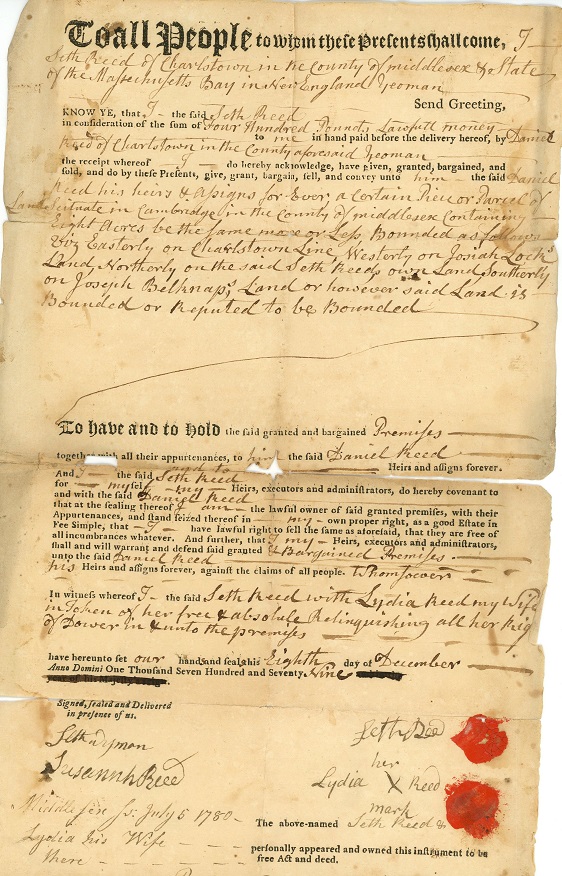 To all People to whom these Presents shall come, I
Seth Reed of Charlstown in the County of middlesex & State
of the Massachusetts Bay in New England Yeoman
Send Greeting,
KNOW YE, that I the said Seth Reed
in consideration of the sum of Four Hundred Pounds Lawfull money
to me in hand paid before the delivery hereof, by Daniel
Reed of Charlstown in the County aforesaid Yeoman
the receipt whereof I do hereby acknowledge, have given, granted, bargained, and
sold, and do by these Presents, give, grant, bargain, sell, and convey unto him the said Daniel
Reed his heirs & assigns for Ever; a Certain Piece or Parcel of
Land Scituate in Cambridge in the County of middlesex Containing
Eight Acres be the same more or Less Bounded as follows
Viz Easterly on Charlstown Line, Westerly on Josiah Lock's
Land, Northerly on the said Seth Reeds own Land, Southerly
on Joseph Belknap's Land or however said Land is
Bounded or Reputed to be Bounded
To have and to Hold the said granted and bargained Premises
together with all their appurtenances, to him the said Daniel Reed
and to Heirs and assigns forever.
And I the said Seth Reed
for myself my Heirs, executors and administrators, do hereby covenant to
and with the said Daniel Reed
that at the sealing thereof I am the lawful owner of said granted premises, with their
Appurtenances, and stand seized thereof in my own proper right, as a good Estate in
Fee Simple, that I have lawful right to sell the same as aforesaid, that they are free of
all incumbrances whatever. And further, that I my Heirs, executors and administrators,
shall and will warrant and defend said granted & Bargained Premises
unto the said Daniel Reed
his Heirs and assigns forever, against the claims of all people. Whomsoever
In witness whereof I the said Seth Reed with Lydia Reed my Wife
in Token of her free & absolute Relinquishing all her Rig
of Dower in & unto the premises
have hereunto set our hands and seals his Eighth day of December
Anno Domini One Thousand Seven Hundred and Seventy Nine
Signed, sealed and Delivered
in presence of us.
Seth Wyman
Susannh Reed
Seth Reed
her
Lydia X Reed
mark
Middlesex Ss. July 5 1780
The above-named Seth Reed &
Lydia his Wife
personally appeared and owned this instrument to be
there
free Act and deed.